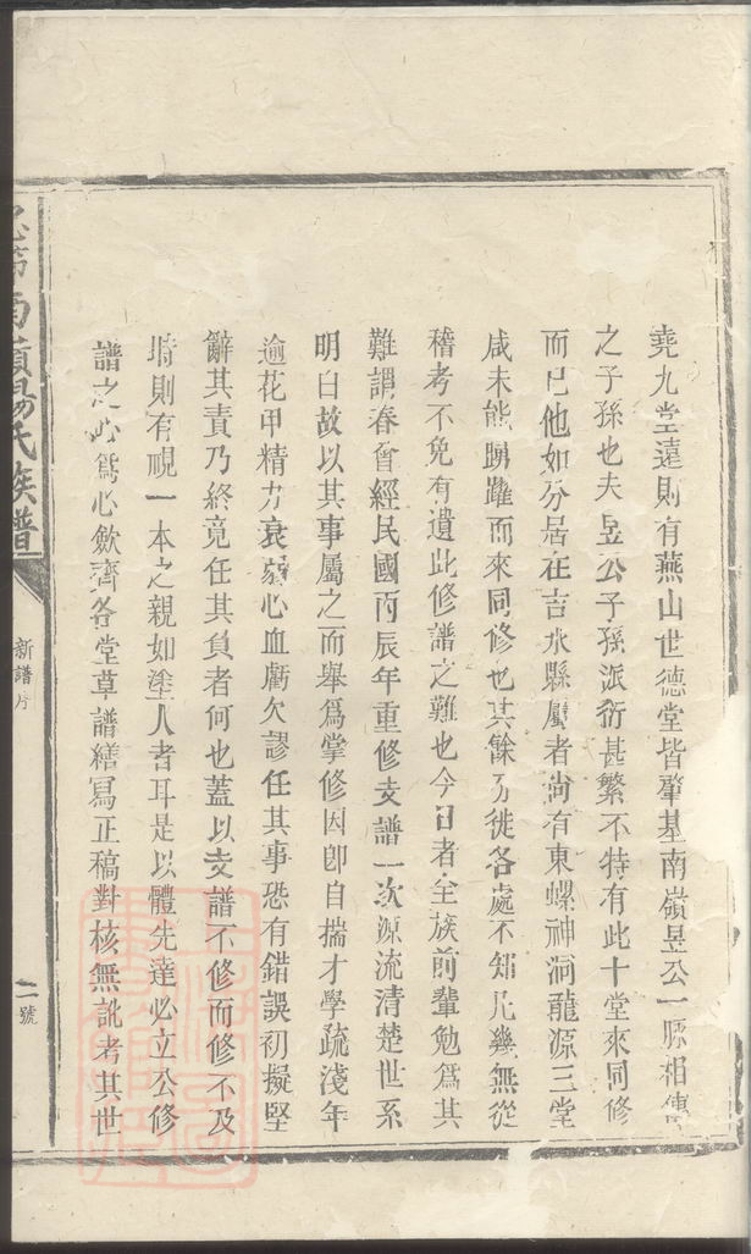 堯九堂遠則有燕山世德堂皆肇基南嶺昱公一脈相傳
之子孫也夫昱公子孫派衍甚繁不特有此十堂來同修
而已他如分居在吉水縣屬者尚有東螺神洞龍源三堂
咸未能踴躍而來同修也其餘分徙各處不知凡幾無從
稽考不免有遺此修譜之難也今日者全族前輩勉爲其
難謂春曾經民國丙辰年重修支譜一次源流清楚世系
明白故以其事屬之而舉爲掌修因卽自揣才學疏淺年
逾花甲精力衰蒻心血虧欠謬任其事恐有錯誤初擬堅
辭其責乃終竟任其負者何也蓋以支譜不修而修不及
時則有視一本之親如塗人者耳是以體先達必立公修
譜之心爲心歛齊各堂草譜繕寫正稿對核無訛考其世
南嶺楊氏族譜
新譜序
二號